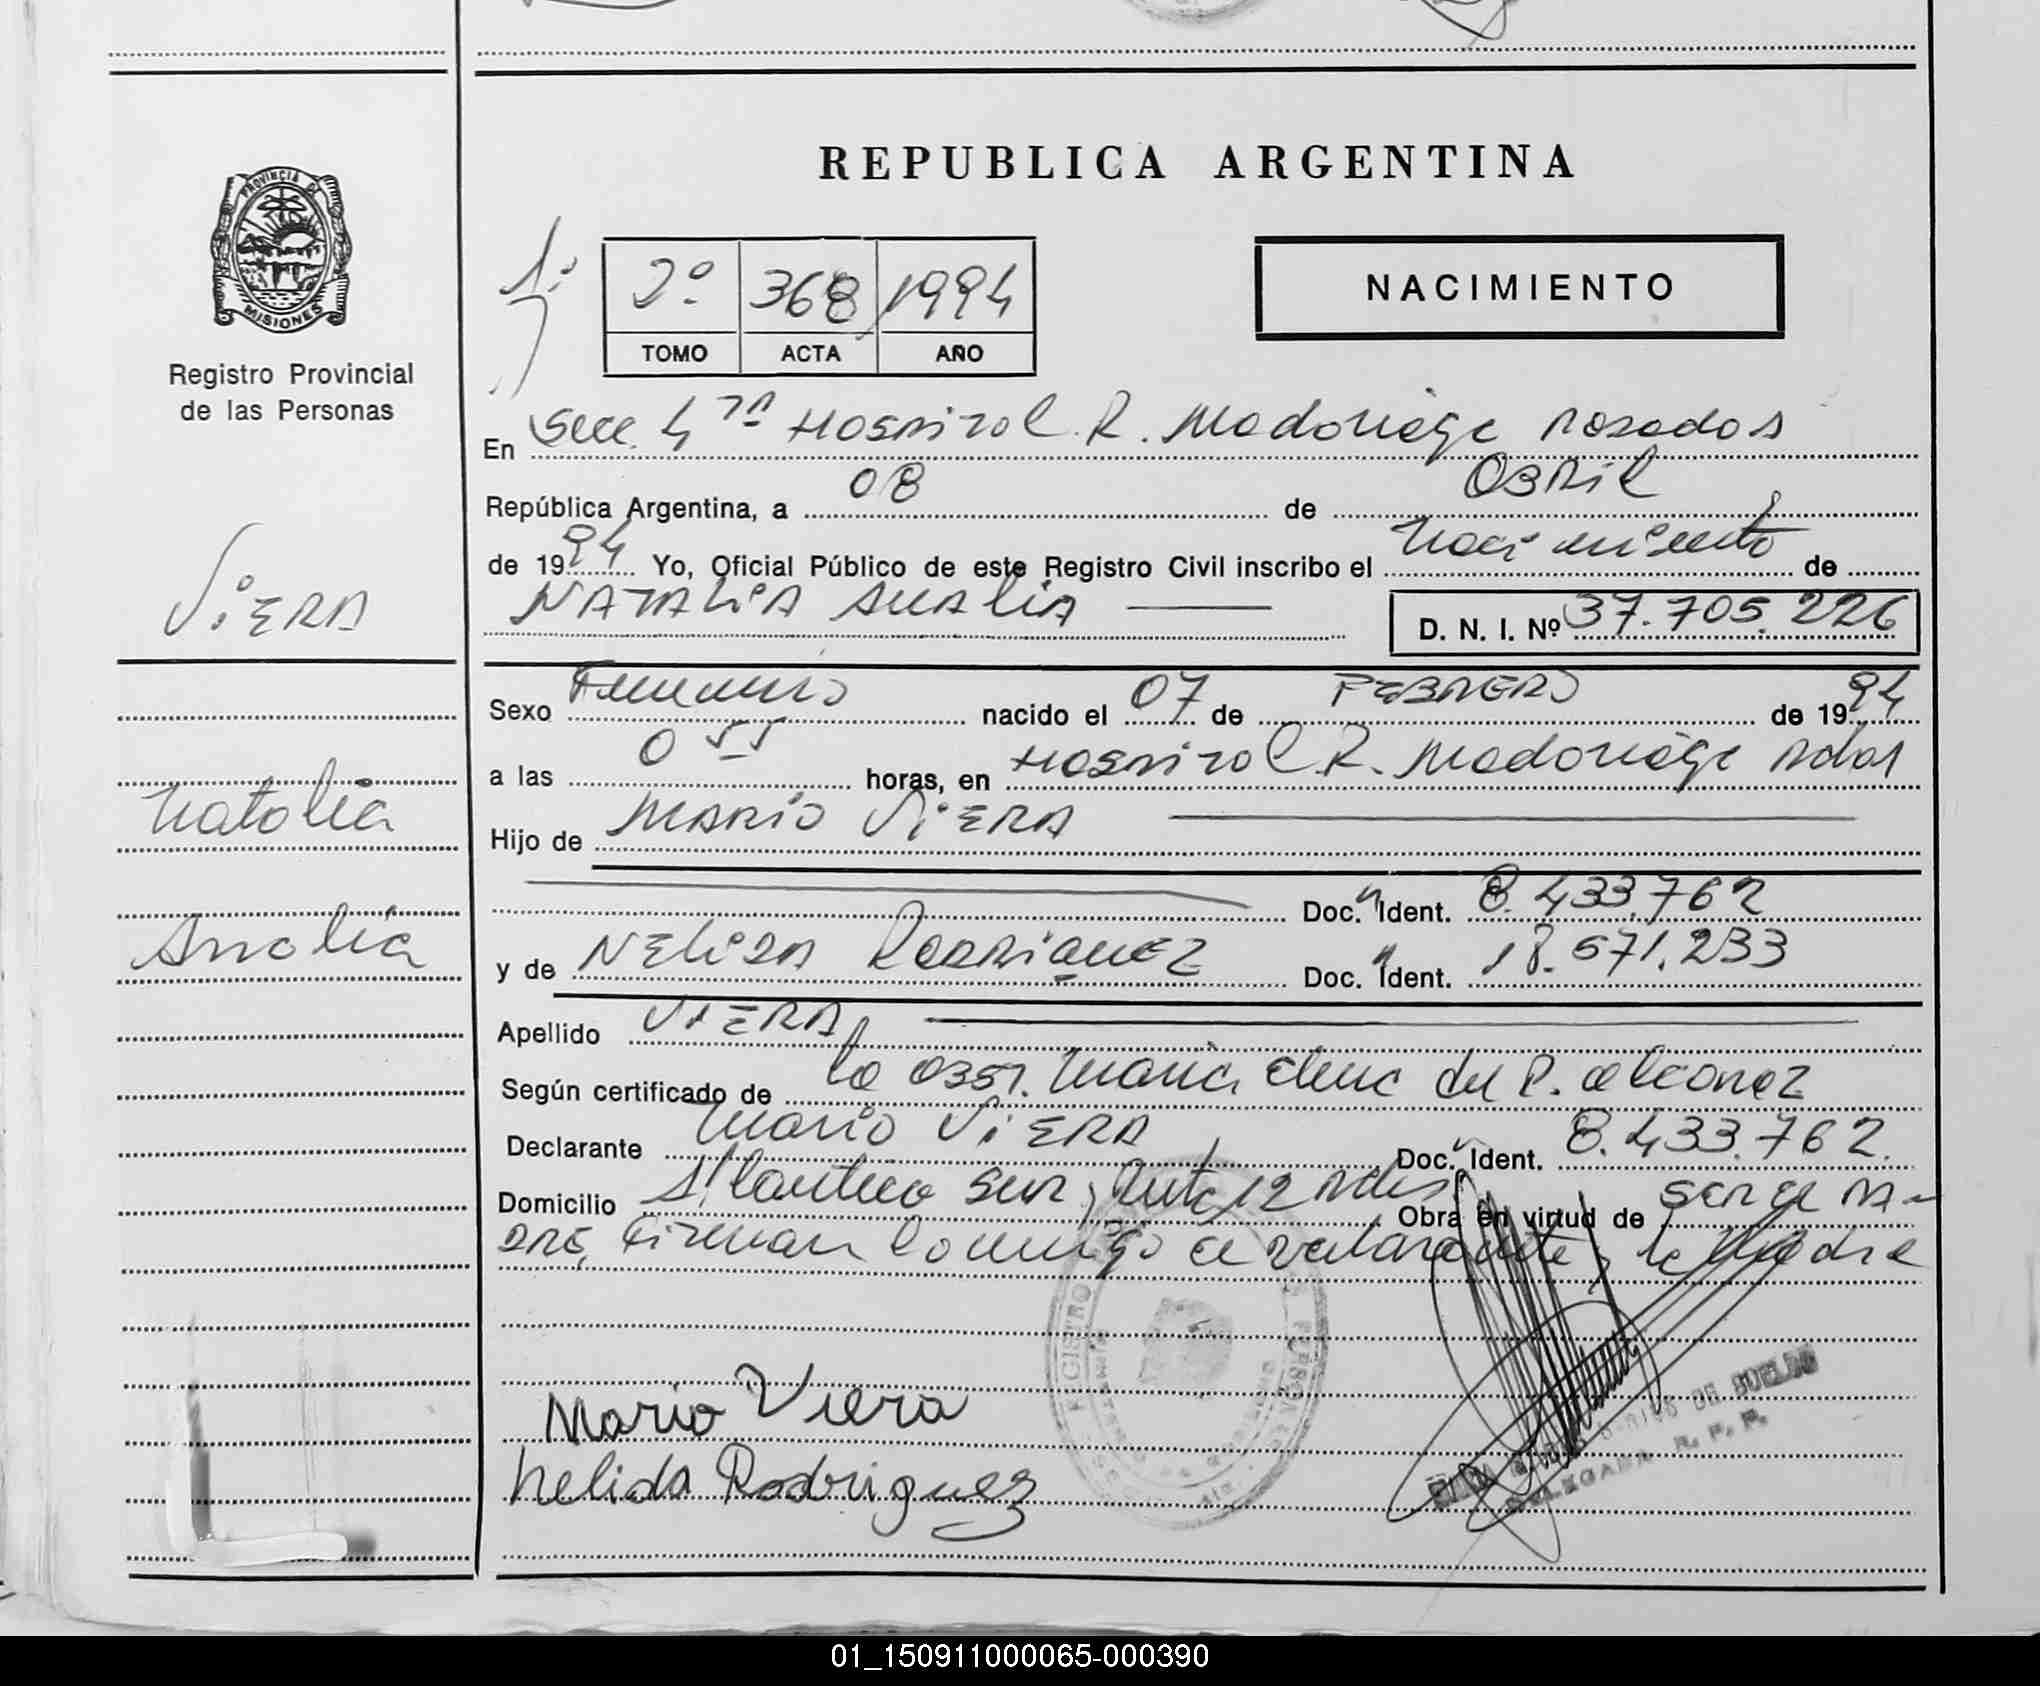 REPUBLICA ARGENTINA
PROVINCIA DE
MISIONES
Registro Provincial
de las Personas
1º
2º 368 1994
TOMO ACTA AÑO
NACIMIENTO
En Secc 4ta Hospital R. Madariaga Posadas
República Argentina, a 08 de Abril
de 1994 Yo, Oficial Público de este Registro Civil inscribo el Nacimiento de
NATALIA ANALIA
D. N. I. Nº 37.705.226
VIERA
Natalia
Analia
Sexo Femenino nacido el 07 de FEBRERO de 1994
a las 0 55 horas, en Hospital R. Madariaga Pdas
Hijo de MARIO VIERA
Doc. Ident. 8.433.762
y de NELIDA RODRIGUEZ Doc. Ident. 18.571.233
Apellido VIERA
Según certificado de la Obst. Maria Elena del P. alcaraz
Declarante Mario VIERA Doc. Ident. 8.433.762.
Domicilio Atlantico Sur, Ruta 12 Pdas Obra en virtud de ser el PA-
DRE, Firman conmigo el declarante y la Madre
Mario Viera
Nelida Rodriguez
REGISTRO
DELEGADA R. P. P.
01_150911000065-000390